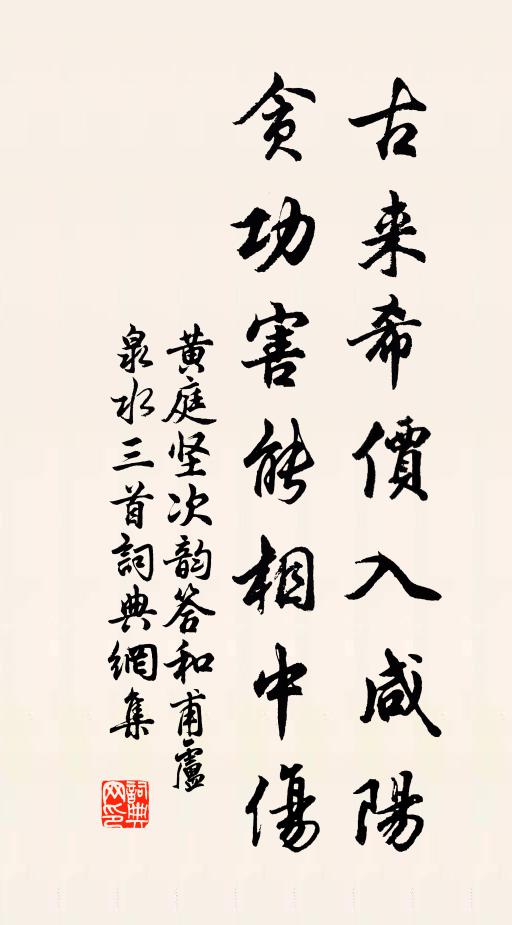 古来希價入咸陽
貪功害能相中傷
黄庭坚次韵答和甫盧
泉水三首詞典網集
詞典网印